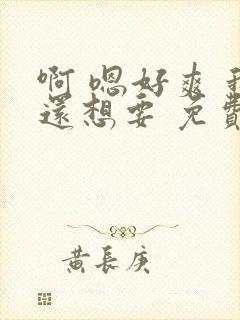 啊 嗯 好 爽
還 想 要 免 費
黃長庚